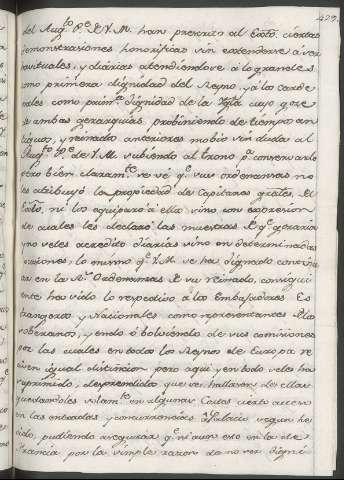 423.
del Aug.to P.e de V.M. han prescrito al Exto. ciertas
demonstraciones honorificas sin extenderse à ser
havituales, y diarias atendiendose à lo grande
como primera dignidad del Reyno, y à los carde
nales como prim.a dignidad de la Ygl.a cuyo goze
de ambas gerarquias probiniendo de tiempo an
tiguos, y reinados anteriores mobio sin duda al
Aug.to P.e de V.M. subiendo al trono p.a conservarlo
pero bien claram.te se vé q.e sus ordenanzas no
les atribuyó la propiedad de Capitanes grales. del
Exto, ni los equiparó à ella sino con expresion
de cuales les declaró las muestras de q.e gozarian
y no se les acredito diarias sino en determinadas
ocasiones, lo mismo q.e V.M. se ha dignado confirm
ar en la R.s Ordenanzas de su reinado, consigui
ente ha sido lo respectivo a los Embajadores Es
trangeros y Nacionales como representantes de los
soberanos, yendo ó bolviendo de sus comisiones
por las cuales en todos los Reynos de Europa re
civen igual distincion pero aqui y en todo se les ha
suprimido, desprendidos que se hallaran de ellas
quedandoles solam.te en algunas Cortes cierto acceso
en las entradas y concurrencias à Palacio segun he
oido, pudiendo asegurar q.e ni aun esto en la de
Francia por la simple razon de no ser digni